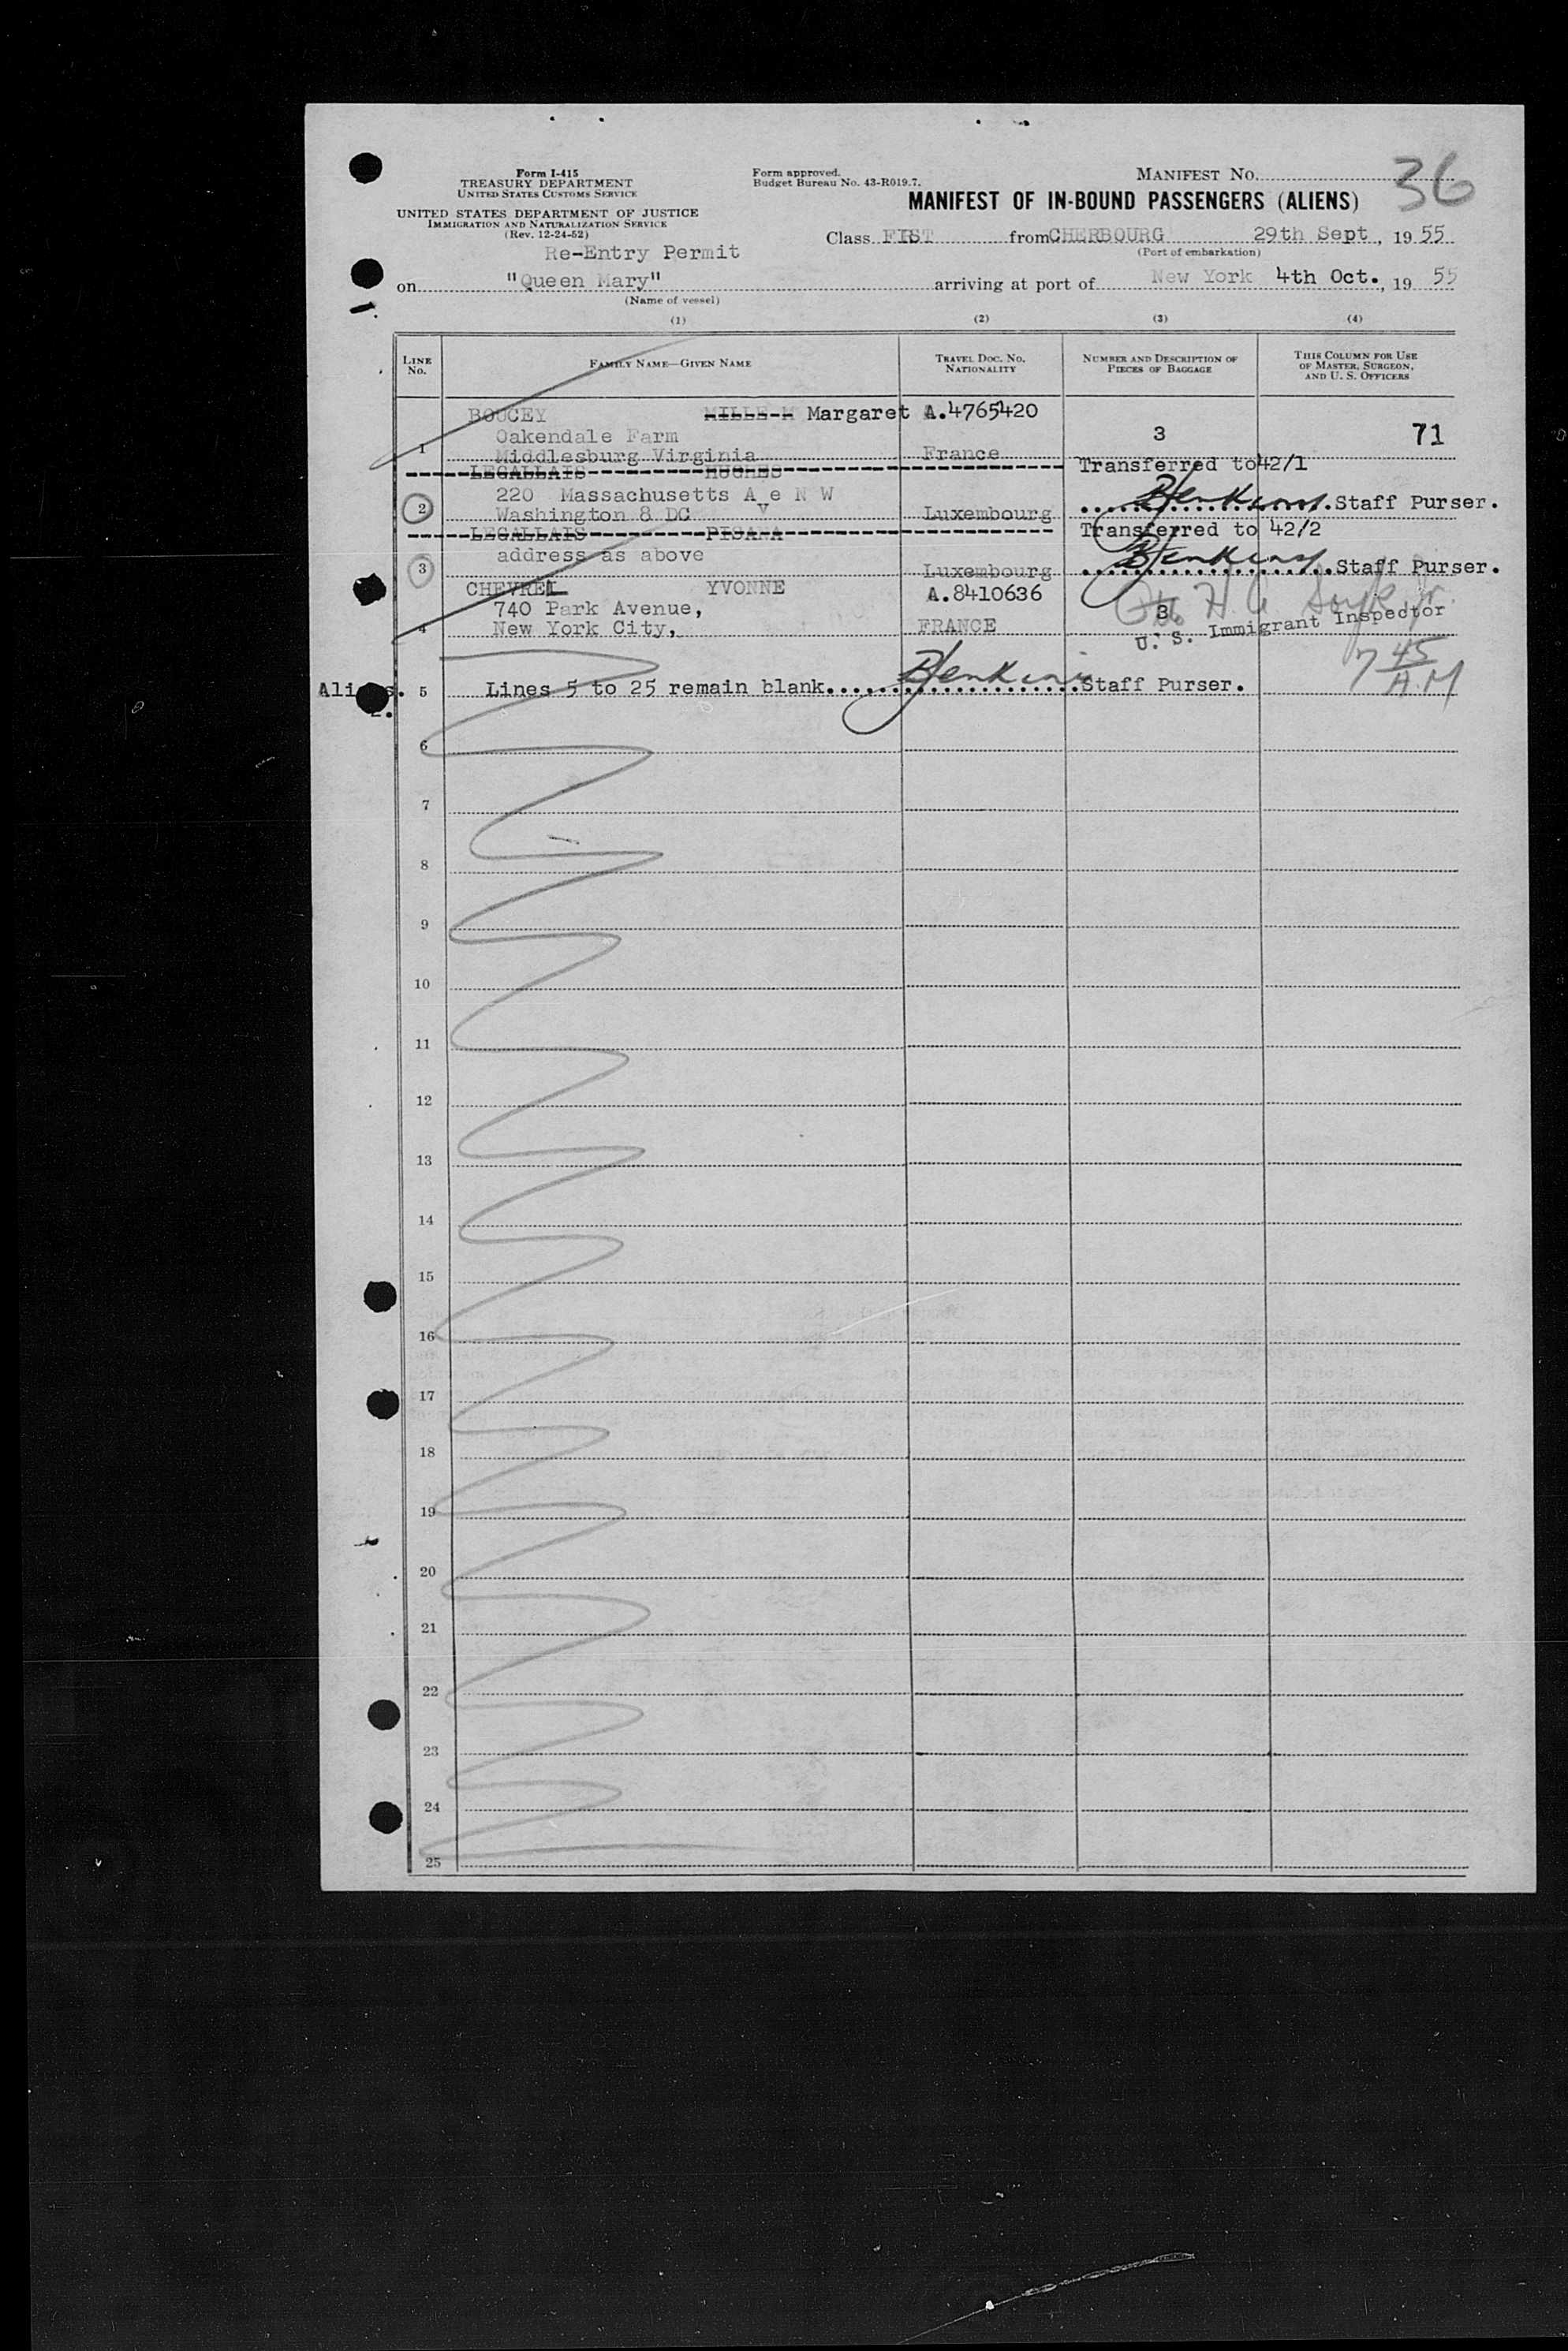 Form I-415
TREASURY DEPARTMENT
UNITED STATES CUSTOMS SERVICE
UNITED STATES DEPARTMENT OF JUSTICE
IMMIGRATION AND NATURALIZATION SERVICE
(Rev. 12-24-52)
Form approved.
Budget Bureau No. 43-R019.7.
MANIFEST No. 36
MANIFEST OF IN-BOUND PASSENGERS (ALIENS)
Re-Entry Permit
Class FIRST from CHERBOURG 29th Sept, 1955
(Port of embarkation)
on "Queen Mary" arriving at port of New York 4th Oct., 1955
(Name of vessel)
(1) (2) (3) (4)
LINE No. FAMILY NAME—GIVEN NAME TRAVEL DOC. No. NATIONALITY NUMBER AND DESCRIPTION OF PIECES OF BAGGAGE THIS COLUMN FOR USE OF MASTER, SURGEON, AND U. S. OFFICERS
BOUCEY MILLE M Margaret A.4765420
Oakendale Farm 3 71
1 Middlesburg Virginia France
LEGALLAIS HUGHES Transferred to 42/1
220 Massachusetts Ave N W
2 Washington 8 DC Luxembourg Jenkins Staff Purser.
LEGALLAIS PISANA Transferred to 42/2
address as above
3 Luxembourg Jenkins Staff Purser.
CHEVREL YVONNE A.8410636
740 Park Avenue, 8
4 New York City, FRANCE U. S. Immigrant Inspector
7 45 A.M
5 Lines 5 to 25 remain blank. Jenkins Staff Purser.
6
7
8
9
10
11
12
13
14
15
16
17
18
19
20
21
22
23
24
25